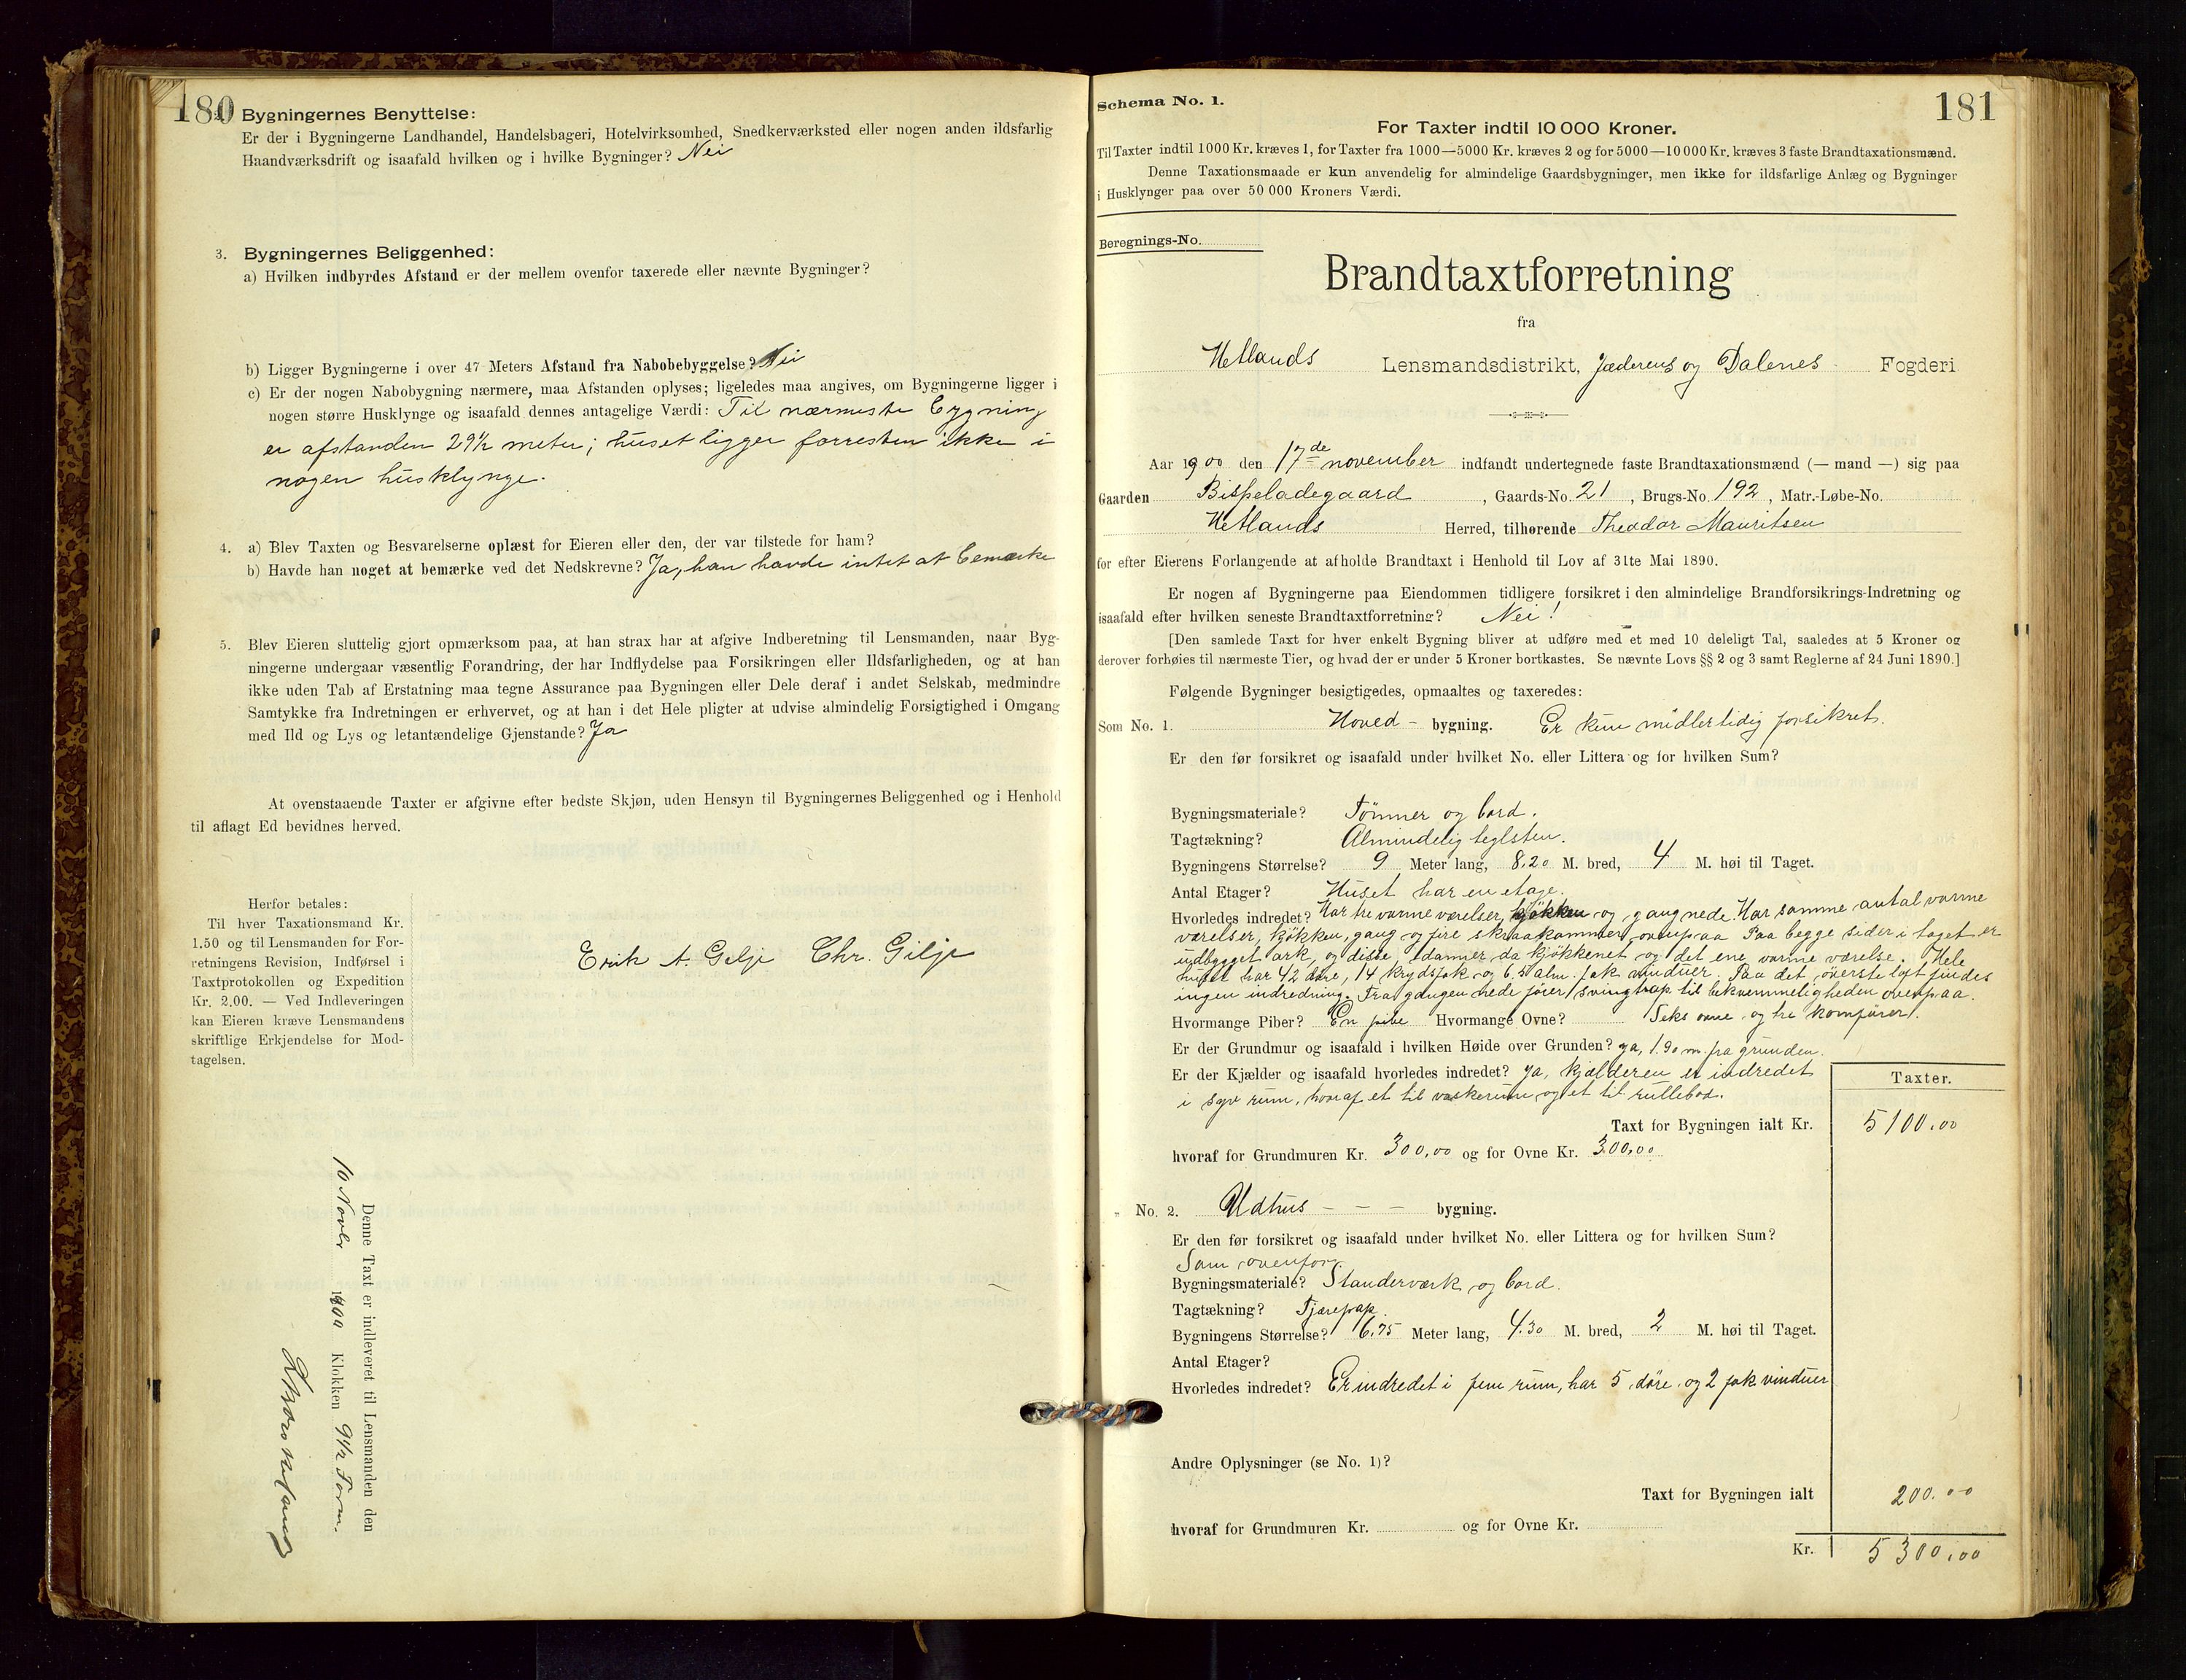 180
2. Bygningernes Benyttelse:
Er der i Bygningerne Landhandel, Handelsbageri, Hotelvirksomhed, Snedkerværksted eller nogen anden ildsfarlig
Haandværksdrift og isaafald hvilken og i hvilke Bygninger? Nei
3. Bygningernes Beliggenhed:
a) Hvilken indbyrdes Afstand er der mellem ovenfor taxerede eller nævnte Bygninger?
b) Ligger Bygningerne i over 47 Meters Afstand fra Nabobebyggelse? Nei
c) Er der nogen Nabobygning nærmere, maa Afstanden oplyses; ligeledes maa angives, om Bygningerne ligger i
nogen større Husklynge og isaafald dennes antagelige Værdi: Til nærmeste bygning
er afstanden 29½ meter; huset ligger forresten ikke i
nogen husklynge.
4. a) Blev Taxten og Besvarelserne oplæst for Eieren eller den, der var tilstede for ham?
b) Havde han noget at bemærke ved det Nedskrevne? Ja, han havde intet at bemærke
5. Blev Eieren sluttelig gjort opmærksom paa, at han strax har at afgive Indberetning til Lensmanden, naar Byg-
ningerne undergaar væsentlig Forandring, der har Indflydelse paa Forsikringen eller Ildsfarligheden, og at han
ikke uden Tab af Erstatning maa tegne Assurance paa Bygningen eller Dele deraf i andet Selskab, medmindre
Samtykke fra Indretningen er erhvervet, og at han i det Hele pligter at udvise almindelig Forsigtighed i Omgang
med Ild og Lys og letantændelige Gjenstande? Ja
At ovenstaaende Taxter er afgivne efter bedste Skjøn, uden Hensyn til Bygningernes Beliggenhed og i Henhold
til aflagt Ed bevidnes herved.
Herfor betales:
Til hver Taxationsmand Kr.
1.50 og til Lensmanden for For-
retningens Revision, Indførsel i
Taxtprotokollen og Expedition
Kr. 2.00. — Ved Indleveringen
kan Eieren kræve Lensmandens
skriftlige Erkjendelse for Mod-
tagelsen.
Erik A. Gilje Chr. Gilje
Denne Taxt er indleveret til Lensmanden den
10 Novbr 1900 Klokken 9½ Form.
181
Schema No. 1.
For Taxter indtil 10 000 Kroner.
Til Taxter indtil 1000 Kr. kræves 1, for Taxter fra 1000—5000 Kr. kræves 2 og for 5000—10 000 Kr. kræves 3 faste Brandtaxationsmænd.
Denne Taxationsmaade er kun anvendelig for almindelige Gaardsbygninger, men ikke for ildsfarlige Anlæg og Bygninger
i Husklynger paa over 50 000 Kroners Værdi.
Beregnings-No.
Brandtaxtforretning
fra
Hetlands Lensmandsdistrikt, Jæderens og Dalenes Fogderi
Aar 1900 den 17de november indfandt undertegnede faste Brandtaxationsmænd (— mand —) sig paa
Gaarden Bispeladegaard, Gaards-No. 21, Brugs-No. 192, Matr.-Løbe-No.
Hetlands Herred, tilhørende Theodor Mauritsen
for efter Eierens Forlangende at afholde Brandtaxt i Henhold til Lov af 31te Mai 1890.
Er nogen af Bygningerne paa Eiendommen tidligere forsikret i den almindelige Brandforsikrings-Indretning og
isaafald efter hvilken seneste Brandtaxtforretning? Nei!
[Den samlede Taxt for hver enkelt Bygning bliver at udføre med et med 10 deleligt Tal, saaledes at 5 Kroner og
derover forhøies til nærmeste Tier, og hvad der er under 5 Kroner bortkastes. Se nævnte Lovs §§ 2 og 3 samt Reglerne af 24 Juni 1890.]
Følgende Bygninger besigtigedes, opmaaltes og taxeredes:
Som No. 1. Hoved - bygning. Er kun midlertidig forsikret.
Er den før forsikret og isaafald under hvilket No. eller Littera og for hvilken Sum?
Bygningsmateriale? Tömmer og bord.
Tagtækning? Almindelig teglsten.
Bygningens Størrelse? 9 Meter lang, 8,20 M. bred, 4 M. høi til Taget.
Antal Etager? Huset har en etage.
Hvorledes indredet? Har tre varme værelser, kjökken og gang nede. Har samme antal varme
værelser, kjökken, gang og fire skraakammer ovenpaa Paa begge sider i taget er
udbygget ark, og disse danner da kjökkenet og det ene varme værelse. Hele
huset har 42 døre, 14 krydsfak og 6 fak vinduer. Paa det överste loft findes
ingen indredning. Fra gangen nede förer 1 svingtrap til bekvemmeligheden ovenpaa.
Hvormange Piber? En pibe Hvormange Ovne? Seks ovne og tre komfurer.
Er der Grundmur og isaafald i hvilken Høide over Grunden? ja, 1.90 m. fra grunden.
Er der Kjælder og isaafald hvorledes indredet? ja, kjælderen er indredet
i syv rum, hvoraf et til vaskerum og et til rullebod.
Taxter.
Taxt for Bygningen ialt Kr. 5100.00
hvoraf for Grundmuren Kr. 300,00 og for Ovne Kr. 300,00
" No. 2. Udhus - - - bygning.
Er den før forsikret og isaafald under hvilket No. eller Littera og for hvilken Sum?
Som ovenfor.
Bygningsmateriale? Standerværk og bord.
Tagtækning? Tjærepap.
Bygningens Størrelse? 6,75 Meter lang, 4.30 M. bred, 2 M. høi til Taget.
Antal Etager?
Hvorledes indredet? Er indredet i fem rum, har 5 döre og 2 fak vinduer
Andre Oplysninger (se No. 1)?
Taxt for Bygningen ialt 200.00
hvoraf for Grundmuren Kr. og for Ovne Kr.
Kr. 5300,00